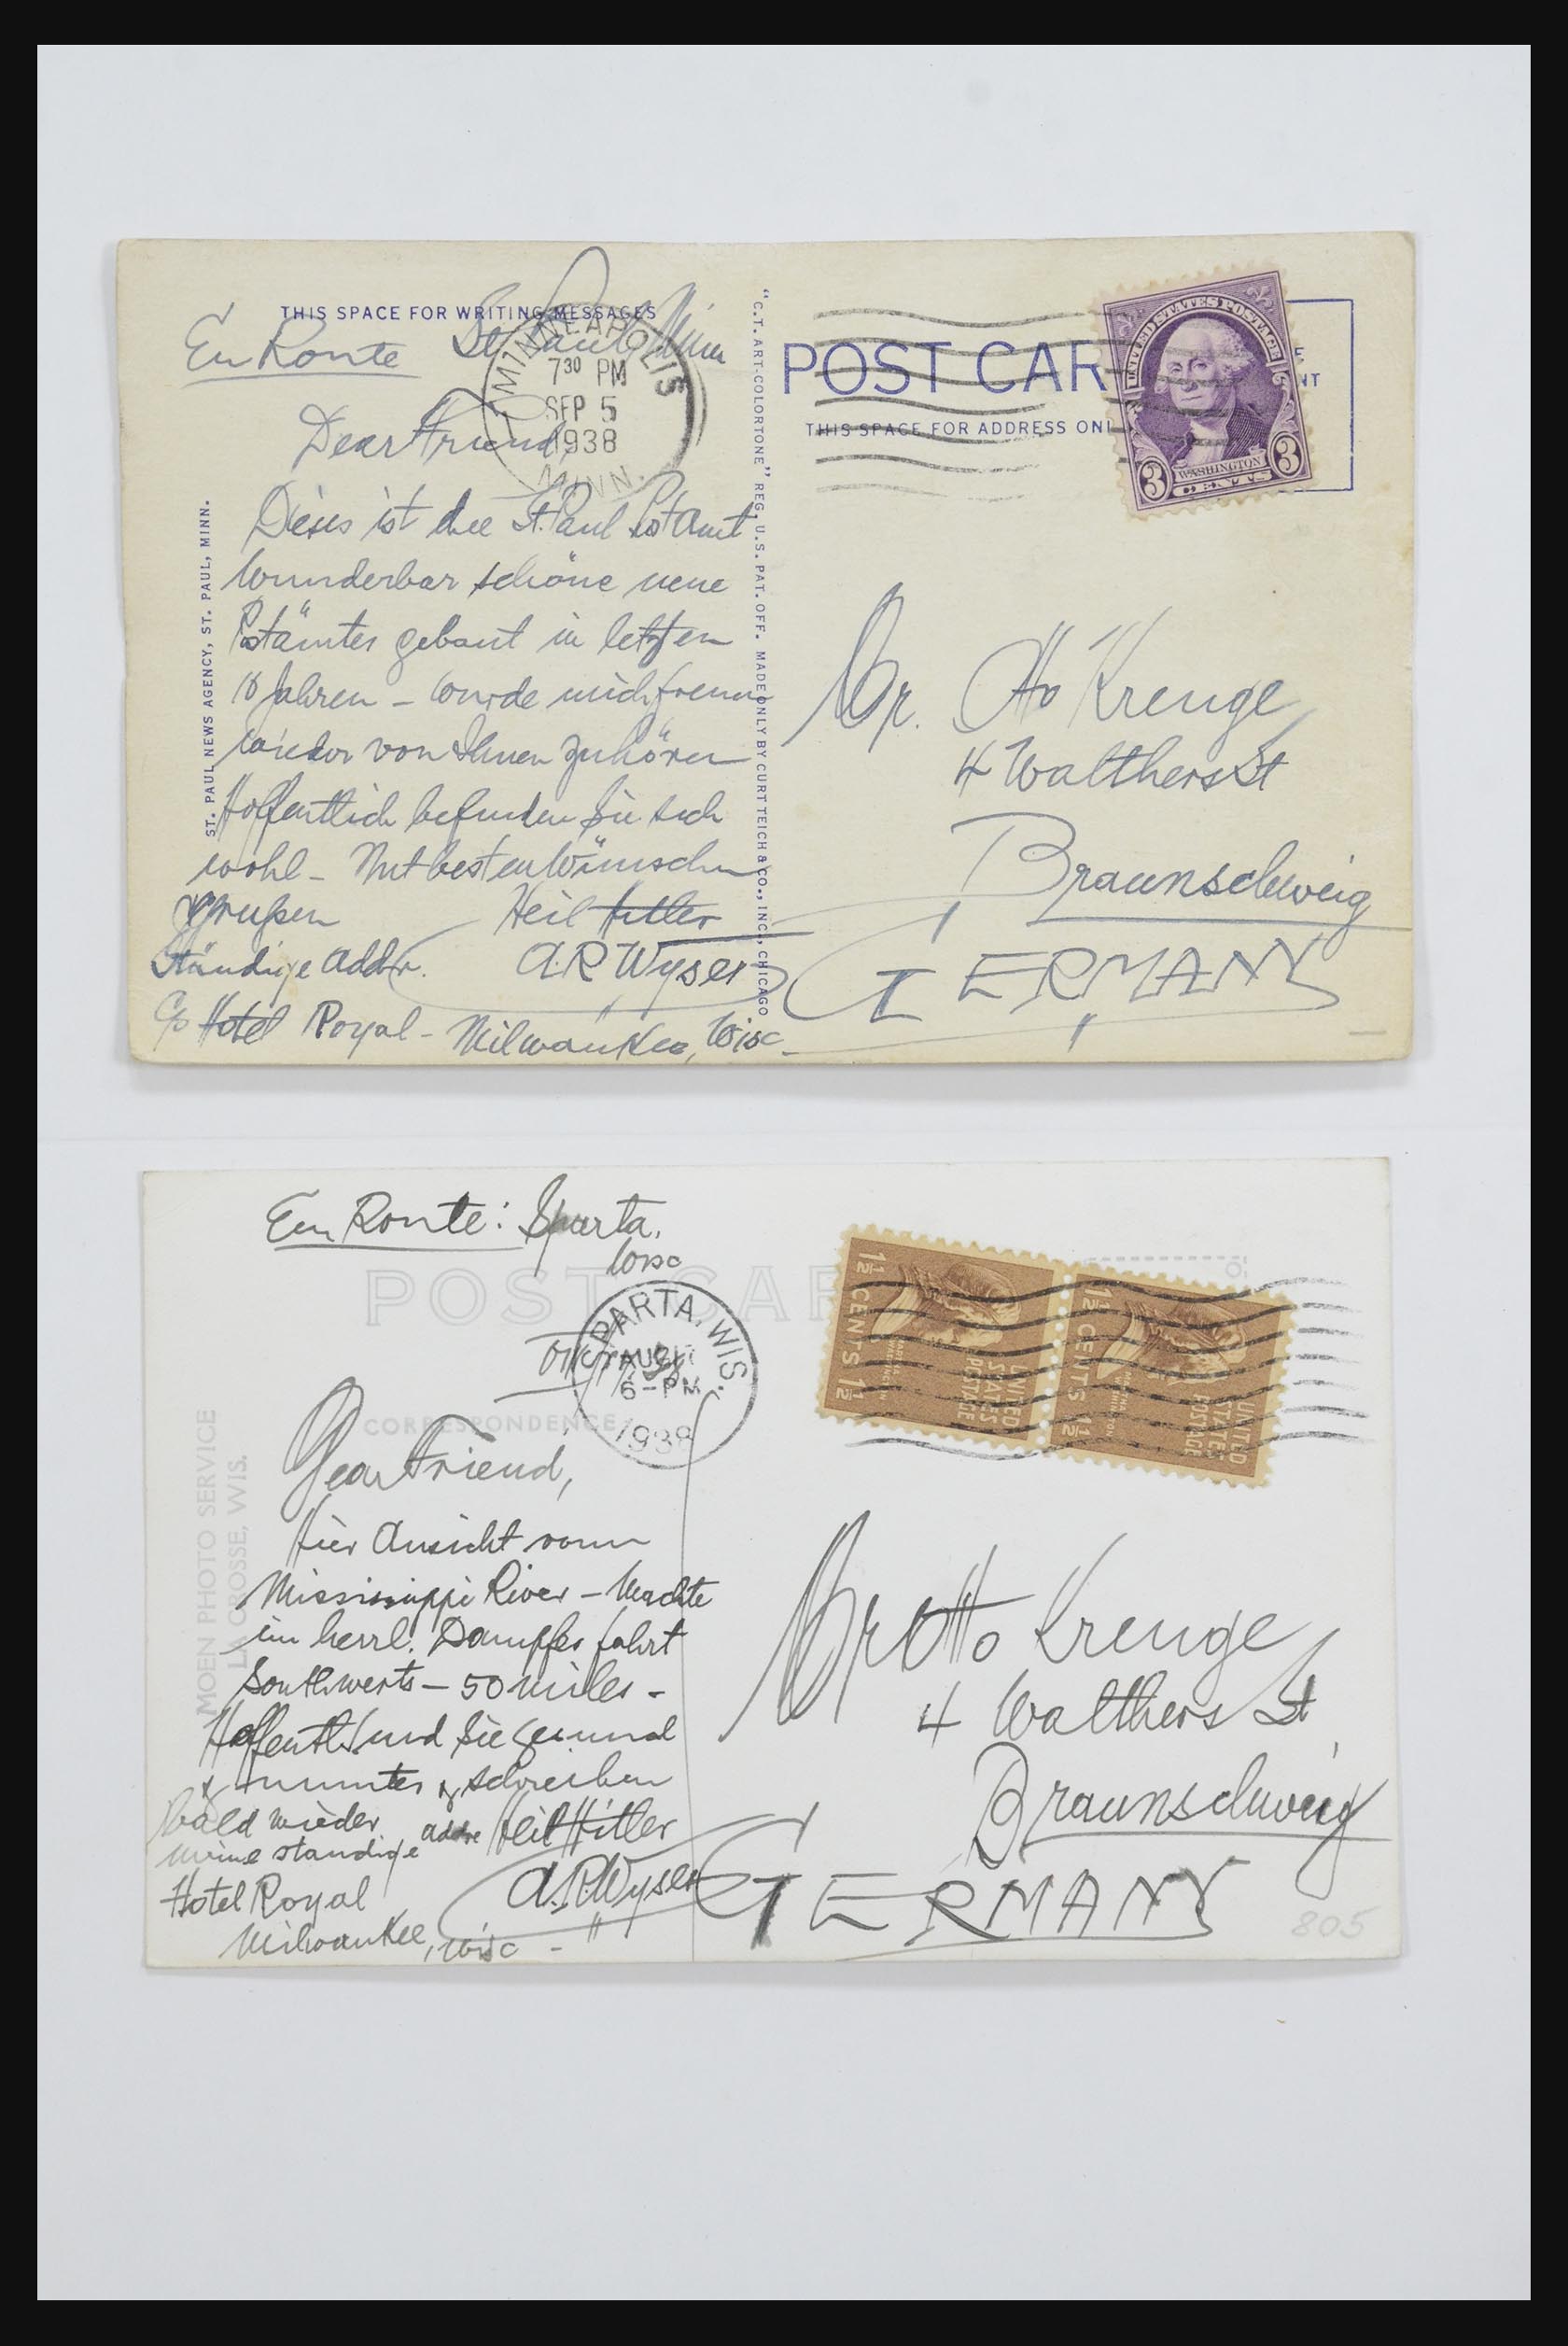 THIS SPACE FOR WRITING MESSAGES
En Route St. Paul, Minn
MINNEAPOLIS
7 30 PM
SEP 5
1938
MINN.
Dear Friend,
Dieses ist die St. Paul Postamt
Wunderbar schöne neue
Postämter gebaut in letzten
10 Jahren – wurde mich freuen
wieder von Ihnen zu hören
Hoffentlich befinden Sie sich
wohl – Mit besten Wünschen
& Grußen Heil Hitler
Ständige Addr. A.R. Wyser
c/o Hotel Royal – Milwaukee, Wisc
ST. PAUL NEWS AGENCY, ST. PAUL, MINN.
"C.T. ART-COLORTONE" REG. U.S. PAT. OFF. MADE ONLY BY CURT TEICH & CO., INC., CHICAGO
POST CAR
THIS SPACE FOR ADDRESS ONL
UNITED STATES POSTAGE
3 WASHINGTON 3
CENTS
Mr. Otto Krenge
4 Walthers St
Braunschweig
GERMANY
En Route: Sparta,
Wisc
POST CAR
SPARTA, WIS.
AUG 17
6-PM
1938
CORRESPONDENCE
Dear Friend,
Hier Ansicht vom
Mississippi River – Machte
ein herrl. Dampfer fahrt
Southwerts – 50 miles –
Hoffentl. sind Sie gesund
& munter & schreiben
bald wieder Heil Hitler
meine standige addre
Hotel Royal A.R. Wyser
Milwaukee, Wisc –
MOEN PHOTO SERVICE
LA CROSSE, WIS.
UNITED STATES POSTAGE
MARTHA WASHINGTON
1½ CENTS 1½
UNITED STATES POSTAGE
MARTHA WASHINGTON
1½ CENTS 1½
Mr Otto Krenge
4 Walthers St,
Braunschweig
GERMANY
805